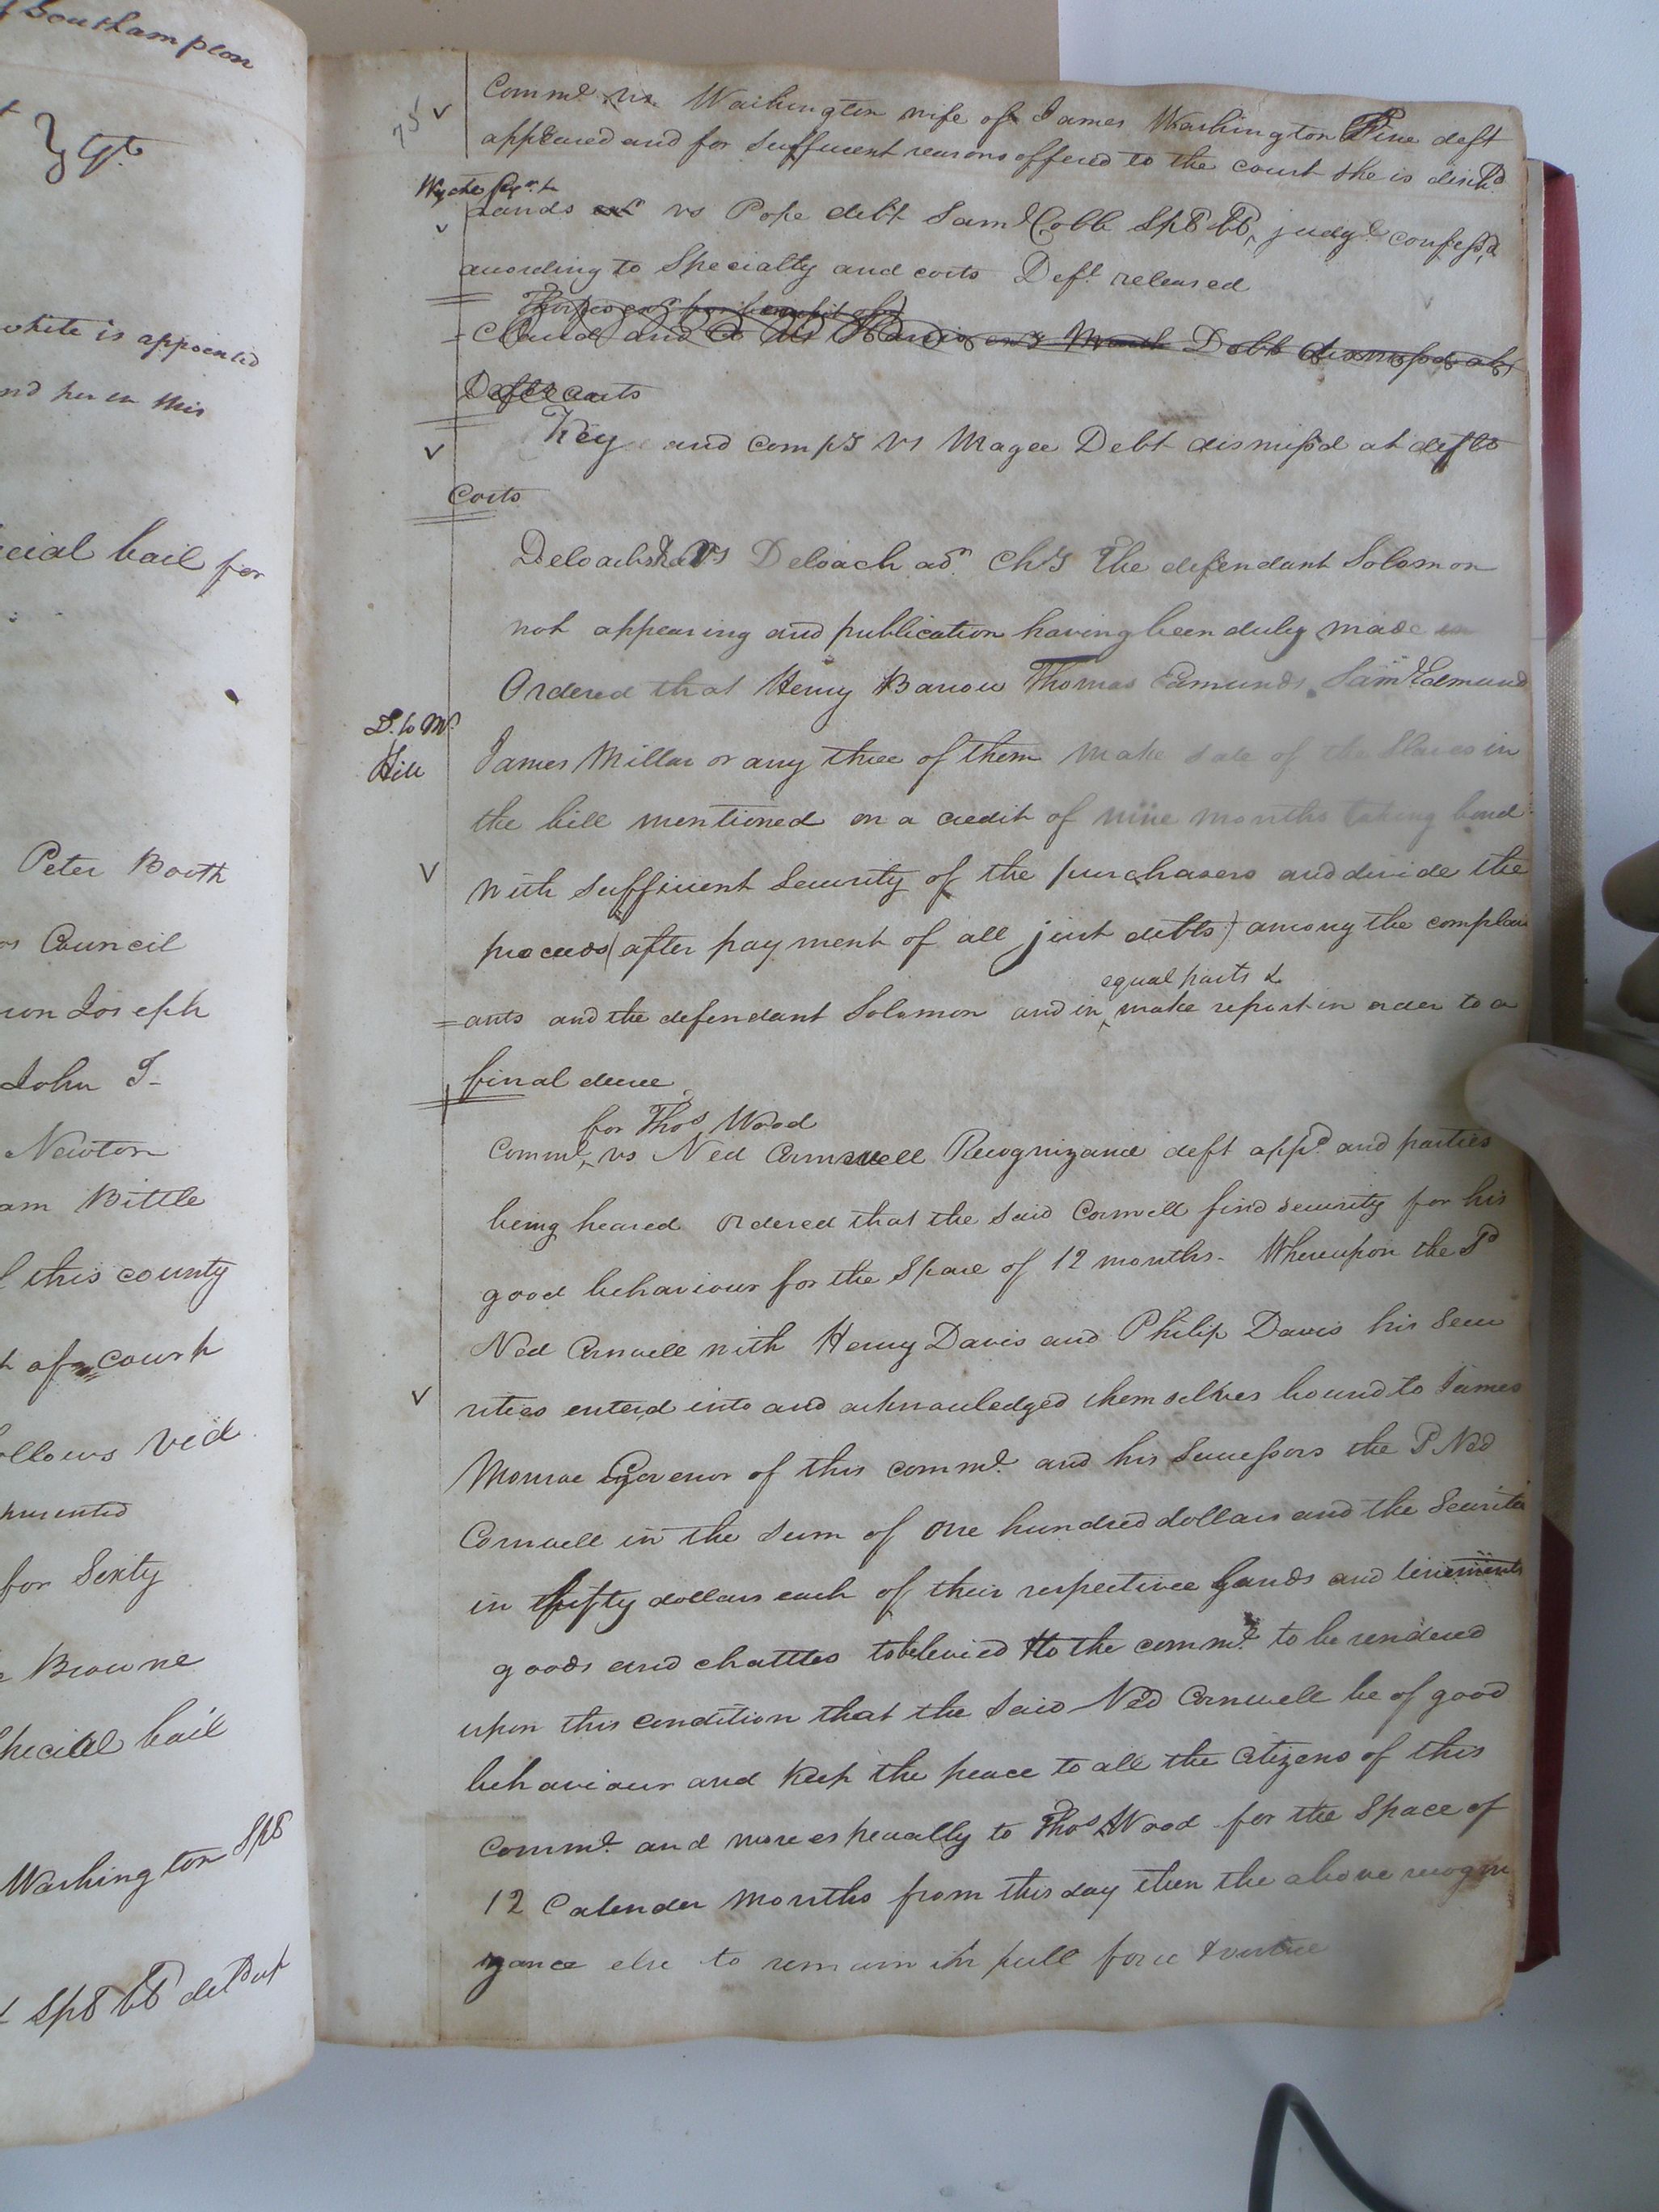 f Southampton
t
} Gt.
white is appointed
nd her in this
ecial bail for
Peter Booth
Council
son Joseph
John J-
Newton
am Bittle
l this county
of court
ollows vid
presented
for Sixty
Browne
special bail
Washington Sps
Sps bb
75
Commd. vs. Washington wife of James Washington Pine deft
appeared and for suffucent reasons offered to the court she is dischd
Wyche
Lands vs Pope debt Saml Cobb Sps bb, judgt confessd
according to Specialty and costs Deft released
Claud and Co vs Debt dismissd at
Defts Costs
Key and compy vs Magee Debt dismissd at defts
Costs
Deloach vs Deloach ads. Chy The defendant Solomon
not appearing and publication having been duly made
Ordered that Henry Barrow Thomas Edmunds, Saml Edmund
D. to Mr.
Hill
James Millar or any three of them make sale of the Slaves in
the bill mentioned on a credit of nine months taking bond
with sufficient Security of the purchasers and divide the
proceeds (after payment of all just debts) among the complain
equal parts &
=ants and the defendant Solomon and in make report in order to a
final decree
for Thos Wood
Commd. vs Ned Cornwell Recognizance deft appd. and parties
being heared ordered that the said Cornwell find security for his
good behaviour for the Space of 12 months - Whereupon the Sd
Ned Cornwell with Henry Davis and Philip Davis his Secu
rities enterd into and acknowledged themselves bound to James
Monroe Govenor of this commd. and his Successors the Sd Ned
Cornwell in the sum of one hundred dollars and the Securitie
in fifty dollars each of their respective Lands and tenements
goods and chattles to be levied to the commd. to be rendered
upon this condition that the said Ned Cornwell be of good
behaviour and keep the peace to all the Citizens of this
Commd. and more especually to Thos Wood for the Space of
12 Calender months from this day then the above recogni
zance else to remain in full force & vertue